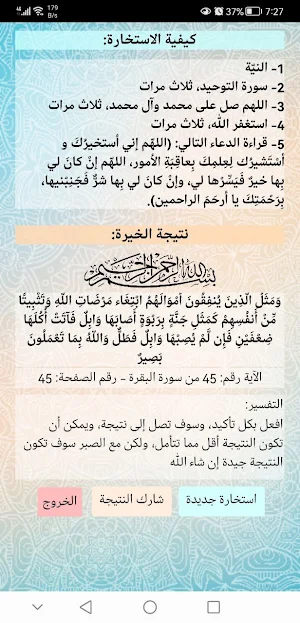 179 B/s 37% 7:27
كيفية الاستخارة:
1- النيّة
2- سورة التوحيد، ثلاث مرات
3- اللهم صل على محمد وآل محمد، ثلاث مرات
4- استغفر الله، ثلاث مرات
5- قراءة الدعاء التالي: (اللهّم إني أستخيرُكَ و
أسْتَشيرُك لِعِلمِكَ بِعاقِبَةِ الأمور، اللهّم إنّ كانَ لي
بِها خيرٌ فَيَسِّرْها لي، وإنْ كانَ لي بِها شرٌّ فَجَنِبْنيها،
بِرَحْمَتِكَ يا أرحَمَ الراحمين).
نتيجة الخيرة:
بسم الله الرحمن الرحيم
وَمَثَلُ الَّذِينَ يُنفِقُونَ أَمْوَالَهُمُ ابْتِغَاء مَرْضَاتِ اللّهِ وَتَثْبِيتًا
مِّنْ أَنفُسِهِمْ كَمَثَلِ جَنَّةٍ بِرَبْوَةٍ أَصَابَهَا وَابِلٌ فَآتَتْ أُكُلَهَا
ضِعْفَيْنِ فَإِن لَّمْ يُصِبْهَا وَابِلٌ فَطَلٌّ وَاللّهُ بِمَا تَعْمَلُونَ
بَصِيرٌ
الآية رقم: 45 من سورة البقرة - رقم الصفحة: 45
التفسير:
افعل بكل تأكيد، وسوف تصل إلى نتيجة، ويمكن أن
تكون النتيجة أقل مما تتأمل، ولكن مع الصبر سوف تكون
النتيجة جيدة إن شاء الله
استخارة جديدة
شارك النتيجة
الخروج